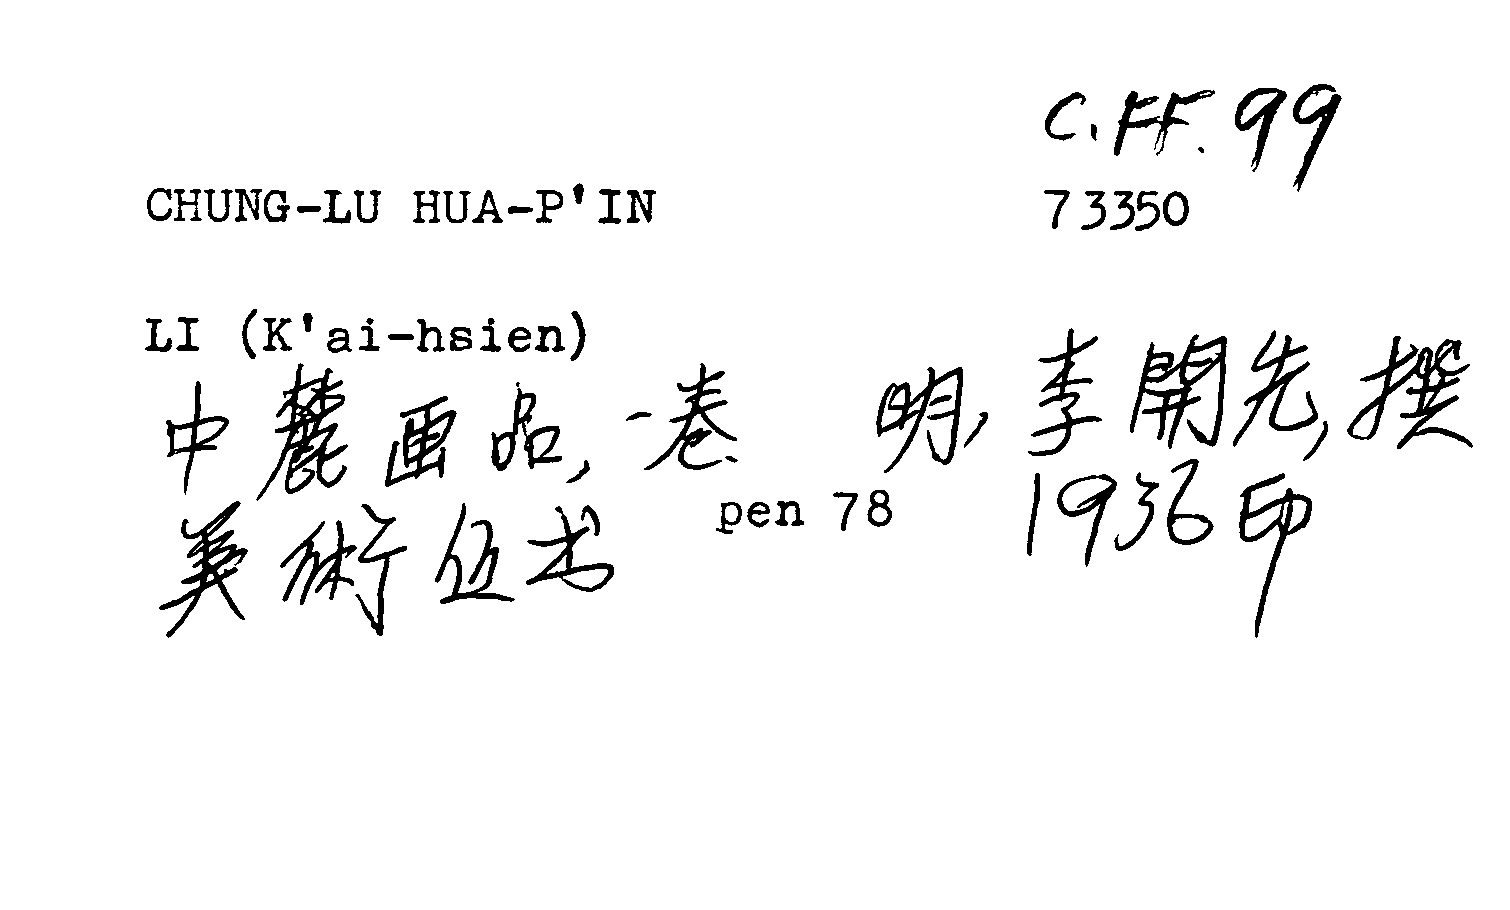 C.FF.99
CHUNG-LU HUA-P'IN 73350
LI (K'ai-hsien)
中麓画品,一卷 明,李開先,撰
美術丛书 pen 78 1936印